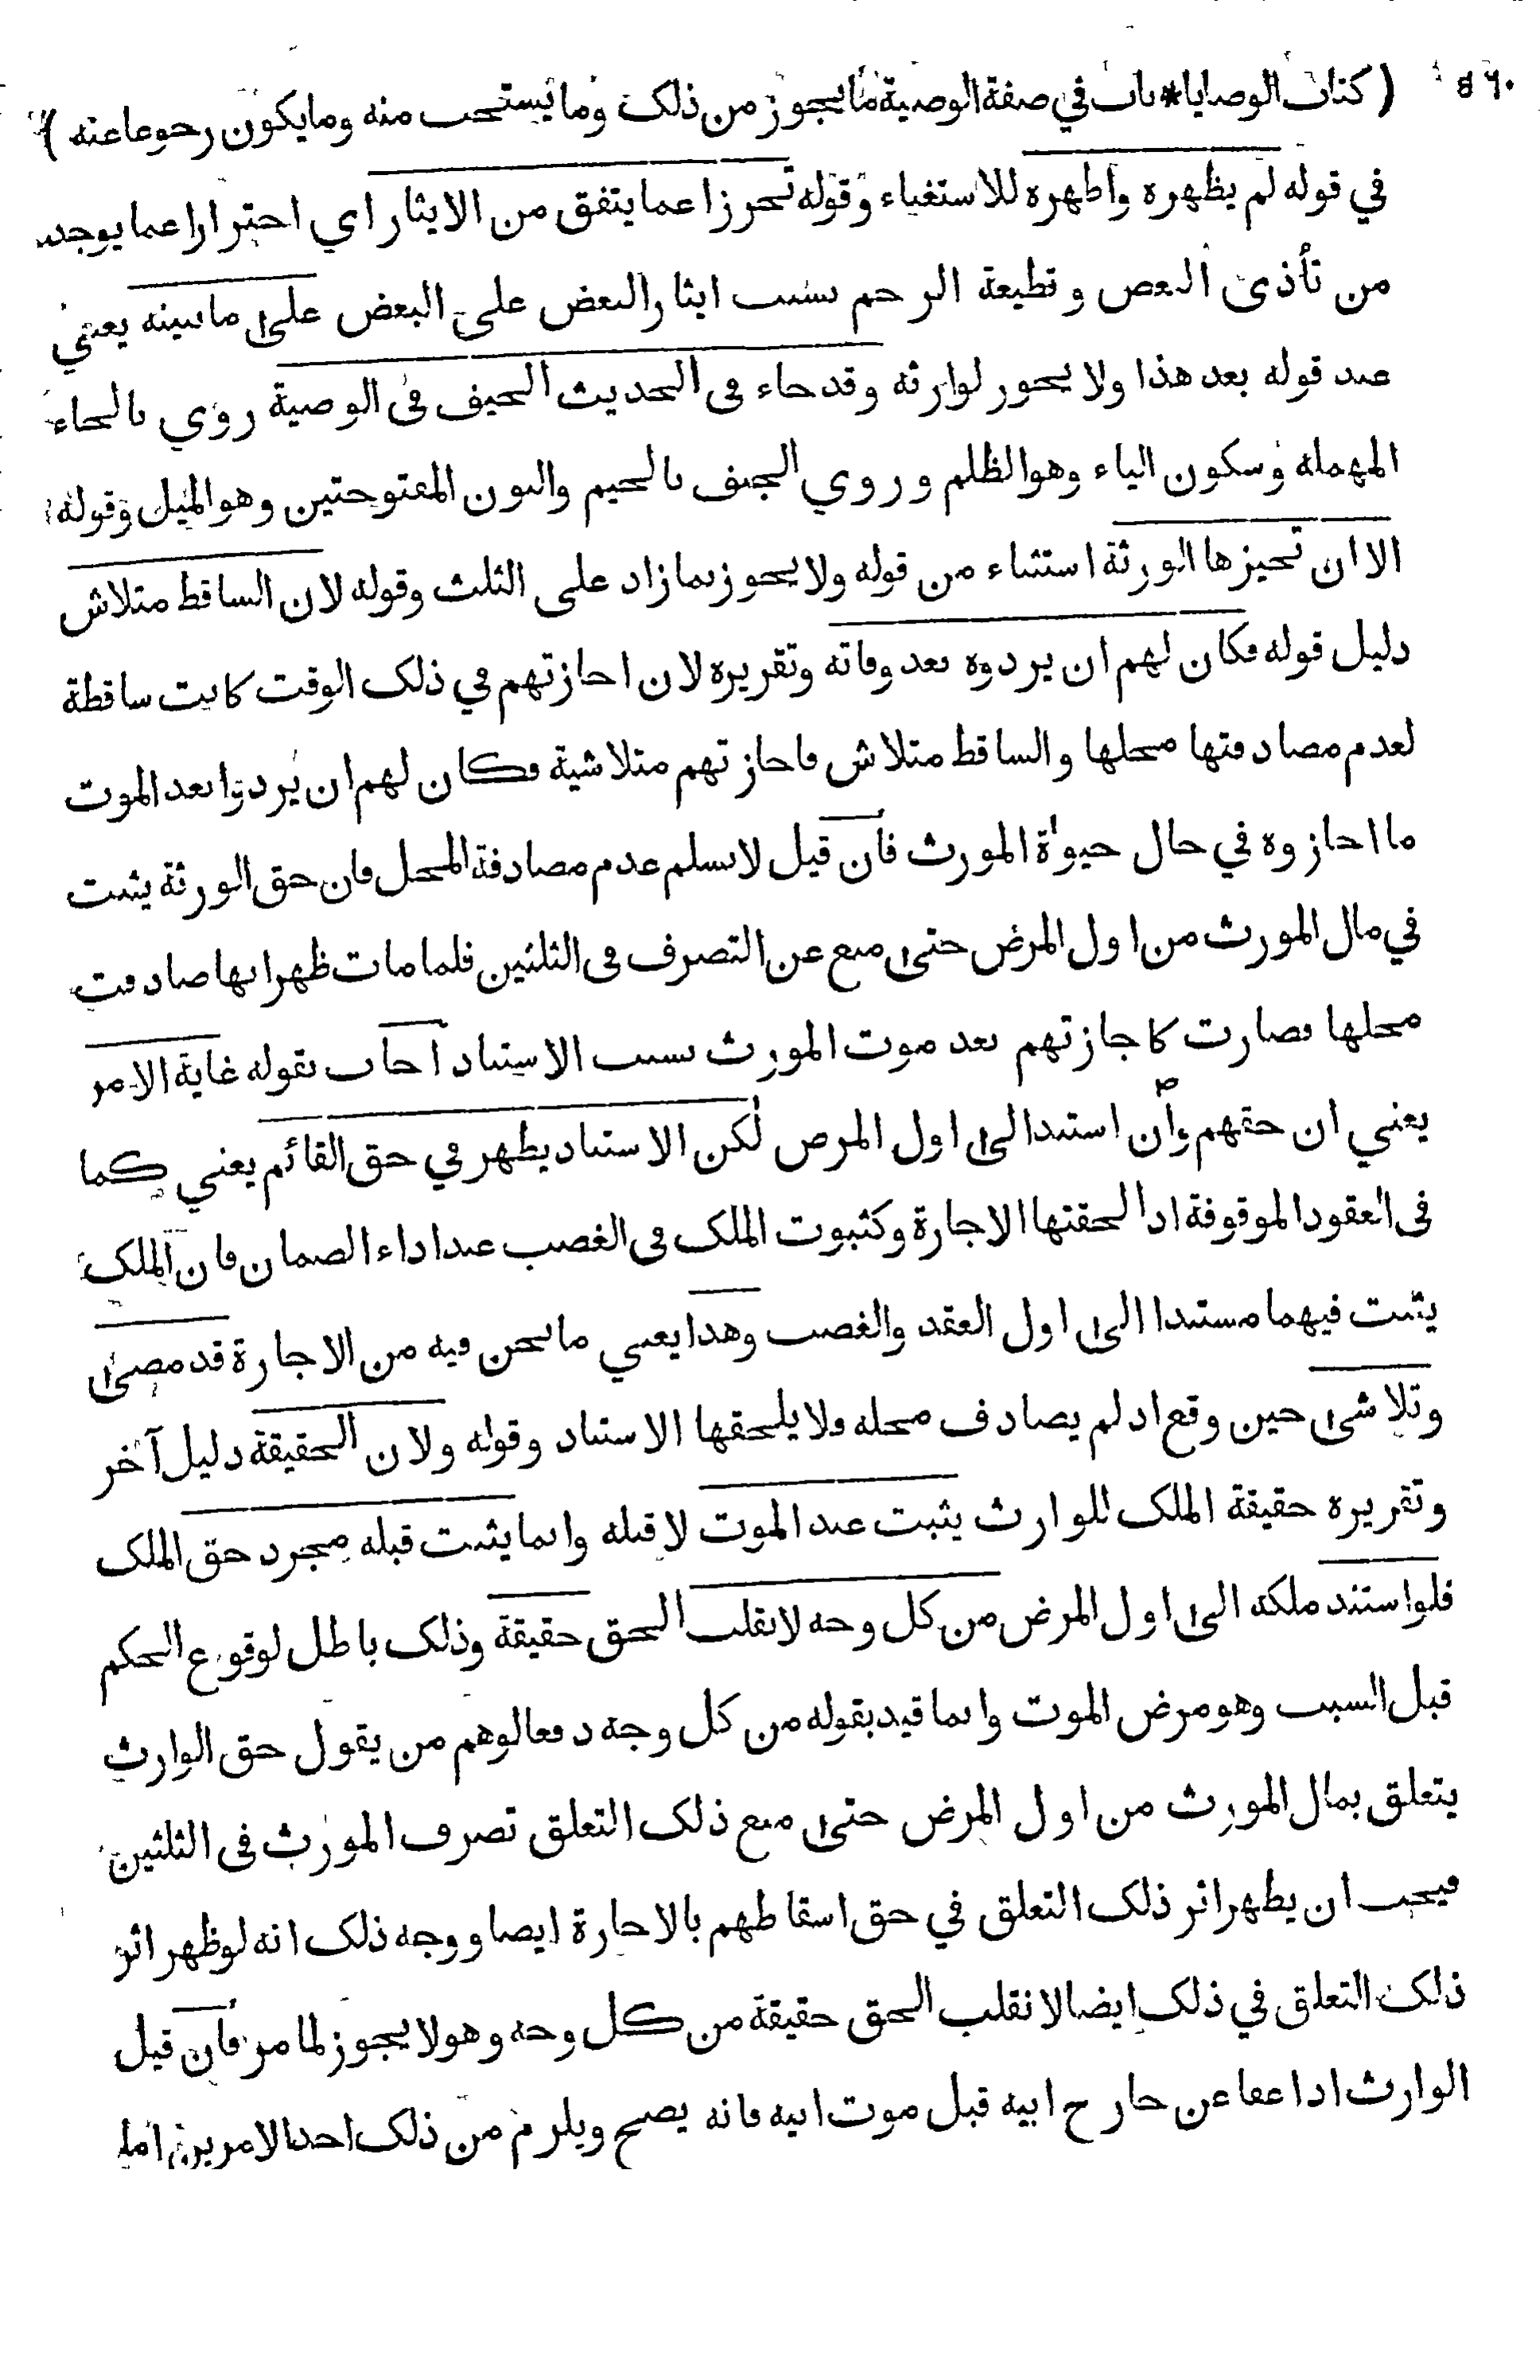 ( كتاب الوصايا * باب في صفة الوصية ما يجوز من ذلك وما يستحب منه وما يكون رجوعا عنه ) ٥٦٠
في قوله لم يظهره واظهره للاستغناء وقوله تحرزا عما يتفق من الايثار اي احترازا عما يوجد
من تأذى البعض وقطيعة الرحم بسبب ايثار البعض على البعض على ما نبينه يعني
عند قوله بعد هذا ولا يجوز لوارثه وقد جاء في الحديث الحيف في الوصية روي بالحاء
المهملة وسكون الياء وهو الظلم وروي الجنف بالجيم والنون المفتوحتين وهو الميل وقوله
الا ان تجيزها الورثة استثناء من قوله ولا يجوز بما زاد على الثلث وقوله لان الساقط متلاش
دليل قوله فكان لهم ان يردوه بعد وفاته وتقريره لان اجازتهم في ذلك الوقت كانت ساقطة
لعدم مصادفتها محلها والساقط متلاش فاجازتهم متلاشية فكان لهم ان يردوا بعد الموت
ما اجازوه في حال حيوة المورث فان قيل لا نسلم عدم مصادفة المحل فان حق الورثة يثبت
في مال المورث من اول المرض حتى منع عن التصرف في الثلثين فلما مات ظهر انها صادفت
محلها فصارت كاجازتهم بعد موت المورث بسبب الاستناد اجاب بقوله غاية الامر
يعني ان حقهم وان استند الى اول المرض لكن الاستناد يظهر في حق القائم يعني كما
في العقود الموقوفة اذا لحقتها الاجازة وكثبوت الملك في الغصب عند اداء الضمان فان الملك
يثبت فيهما مستندا الى اول العقد والغصب وهذا يعني ما نحن فيه من الاجازة قد مضى
وتلاشى حين وقع اذ لم يصادف محله فلا يلحقها الاستناد وقوله ولان الحقيقة دليل آخر
وتقريره حقيقة الملك للوارث يثبت عند الموت لا قبله وانما يثبت قبله مجرد حق الملك
فلو استند ملكه الى اول المرض من كل وجه لانقلب الحق حقيقة وذلك باطل لوقوع الحكم
قبل السبب وهو مرض الموت وانما قيد بقوله من كل وجه دفعا لوهم من يقول حق الوارث
يتعلق بمال المورث من اول المرض حتى منع ذلك التعلق تصرف المورث في الثلثين
فيجب ان يظهر اثر ذلك التعلق في حق اسقاطهم بالاجازة ايضا ووجه ذلك انه لو ظهر اثر
ذلك التعلق في ذلك ايضا لانقلب الحق حقيقة من كل وجه وهو لا يجوز لما مر فان قيل
الوارث اذا عفا عن جارح ابيه قبل موت ابيه فانه يصح ويلزم من ذلك احد الامرين اما